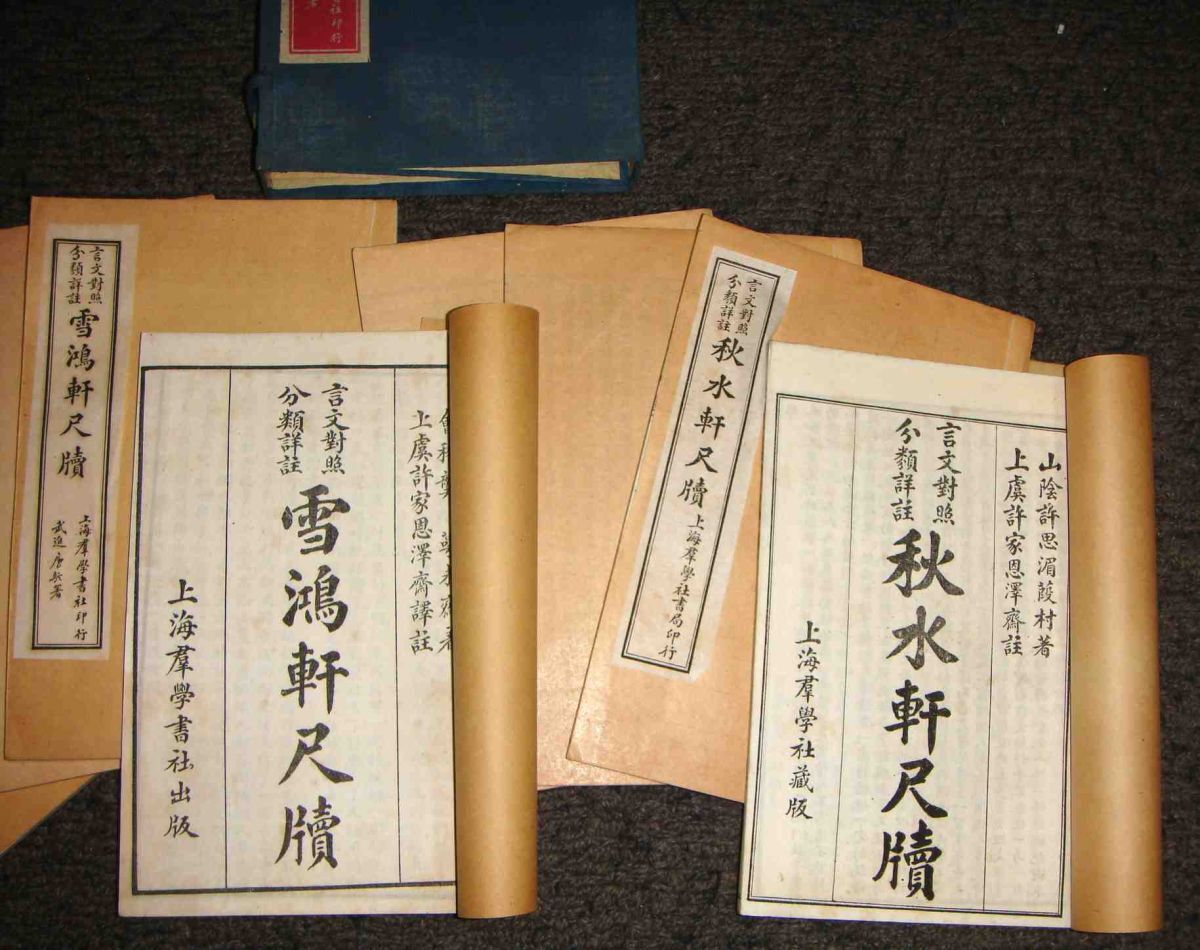 社印行
言文對照
分類詳註
雪鴻軒尺牘
上海羣學書社印行
武進唐
署
上虞許家恩澤齋譯註
言文對照
分類詳註
雪鴻軒尺牘
上海羣學書社出版
言文對照
分類詳註
秋水軒尺牘
上海羣學社書局印行
山陰許思湄葭村著
上虞許家恩澤齋註
言文對照
分類詳註
秋水軒尺牘
上海羣學社藏版